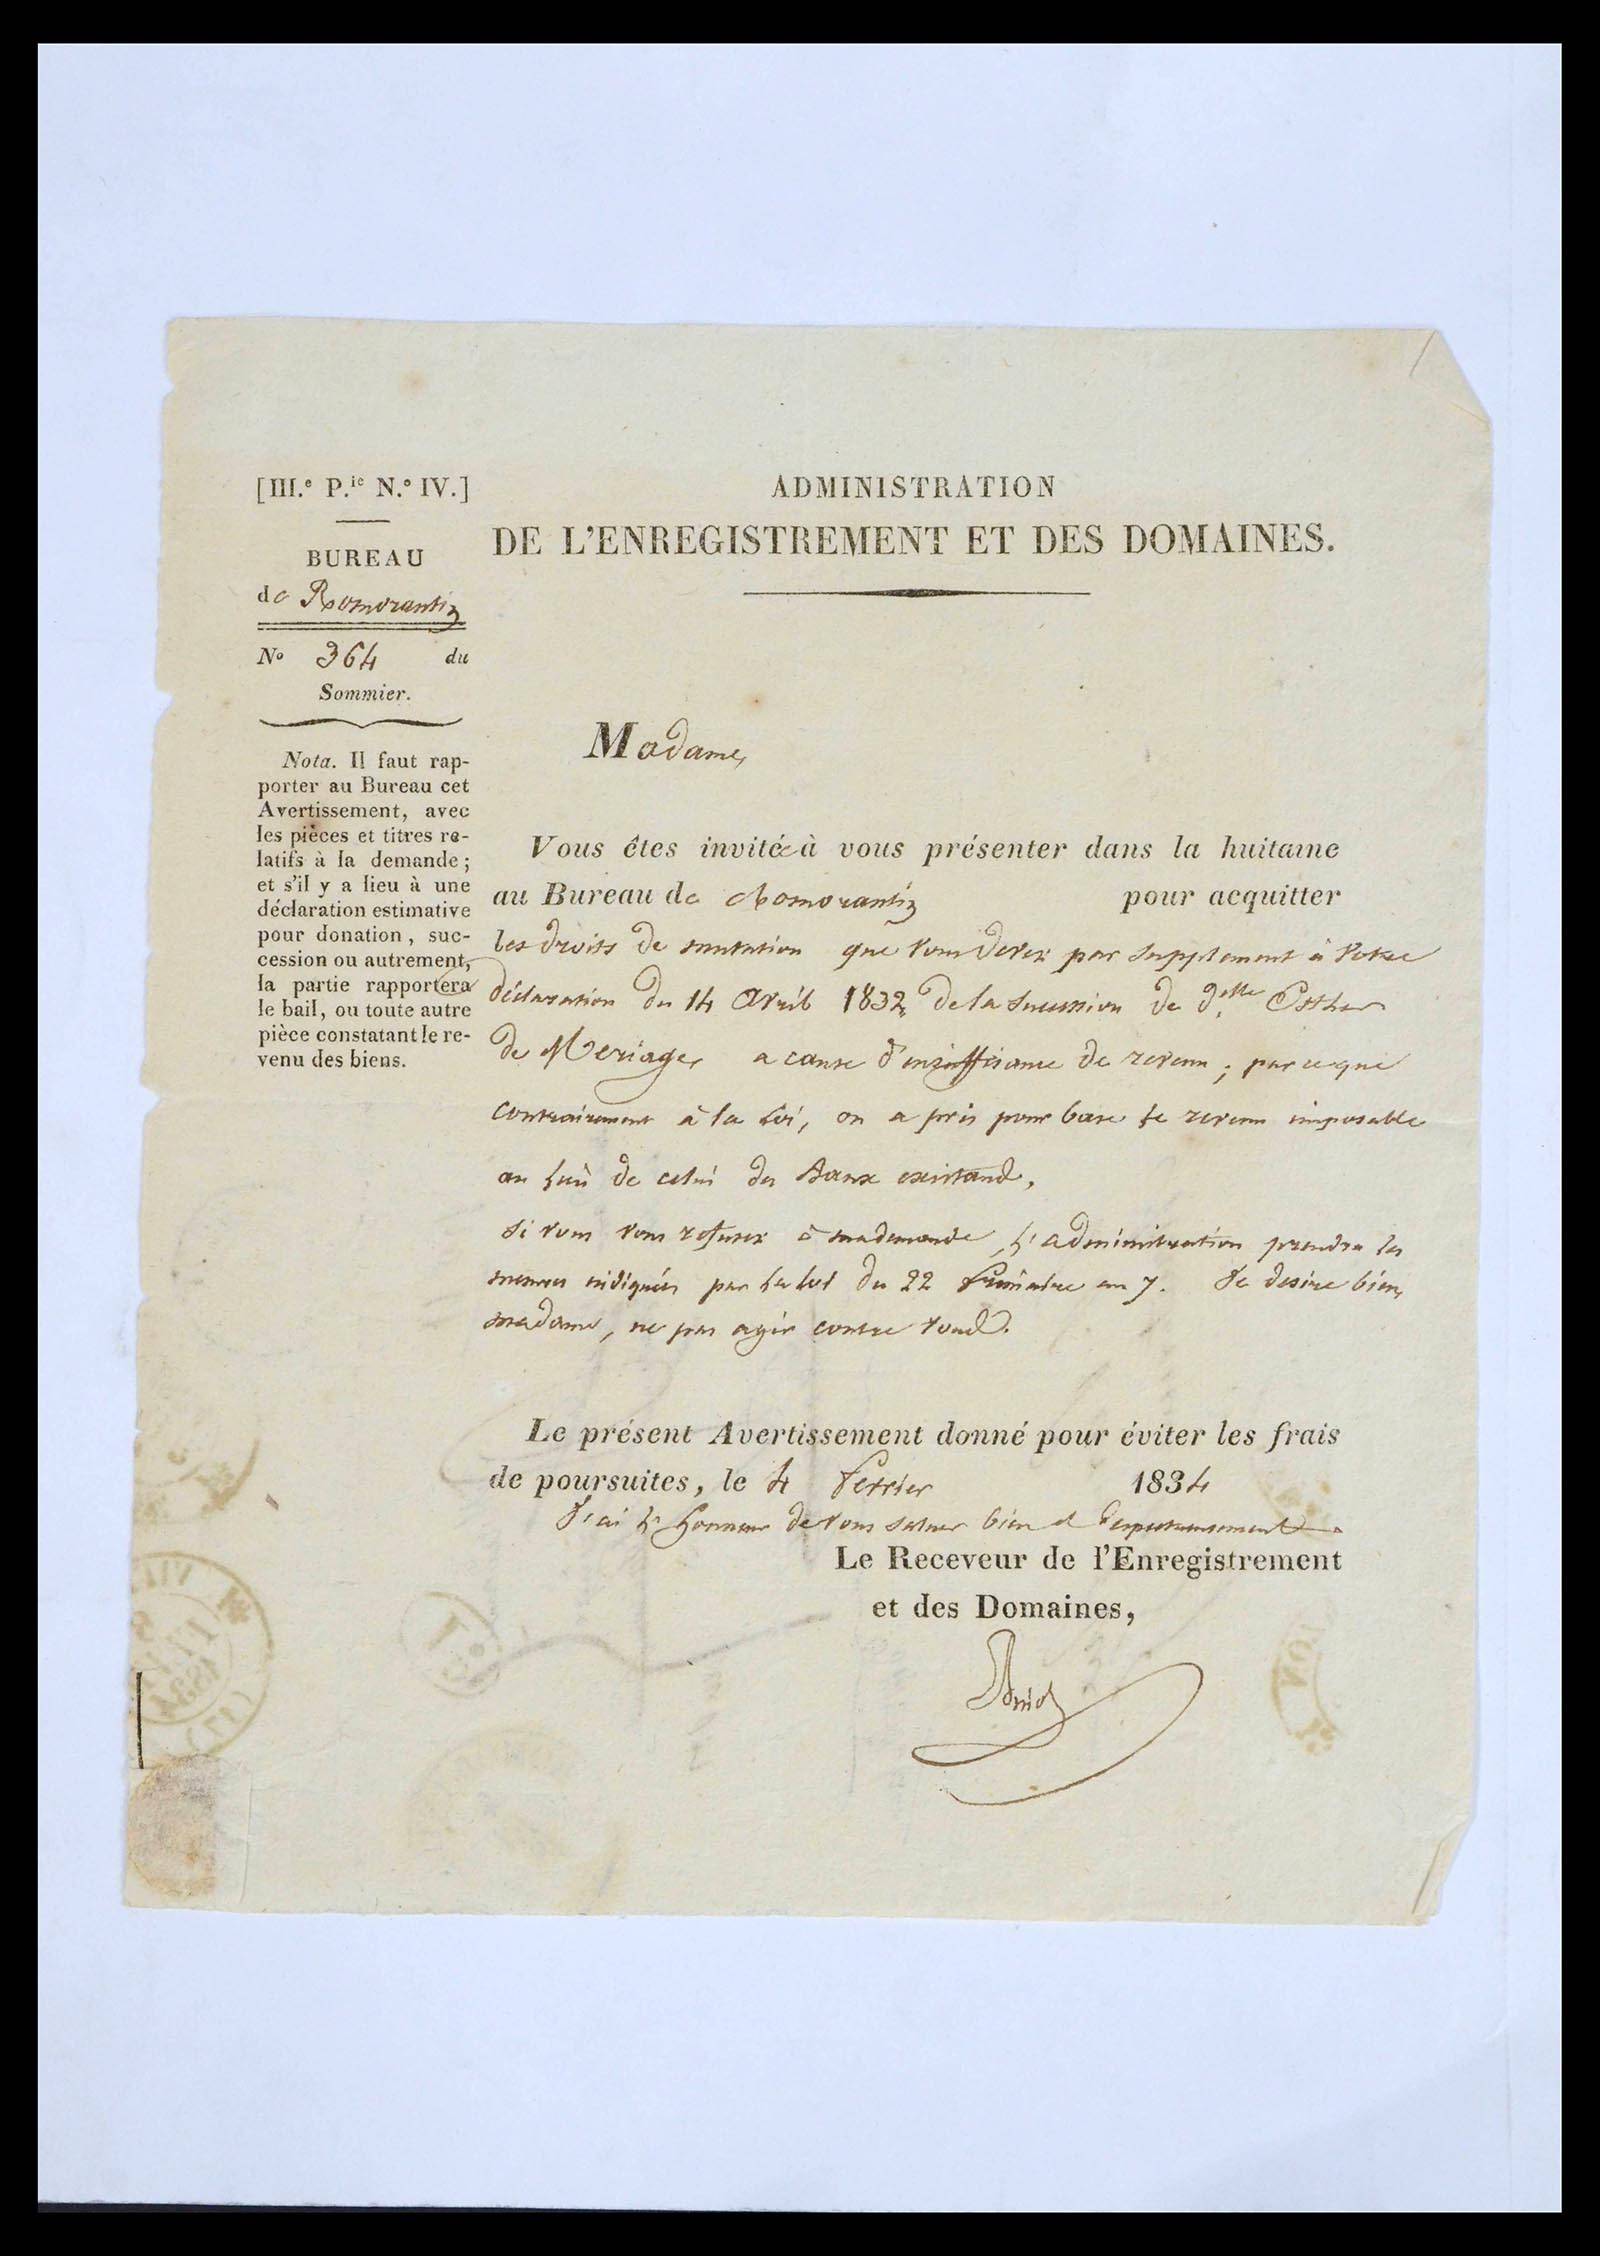 [III.e P.ie N.o IV.]
BUREAU
de Romorantin
No 364 du
Sommier.
Nota. Il faut rap-
porter au Bureau cet
Avertissement, avec
les pièces et titres re-
latifs à la demande;
et s'il y a lieu à une
déclaration estimative
pour donation, suc-
cession ou autrement,
la partie rapportera
le bail, ou toute autre
pièce constatant le re-
venu des biens.
ADMINISTRATION
DE L'ENREGISTREMENT ET DES DOMAINES.
Madame,
Vous êtes invitée à vous présenter dans la huitaine
au Bureau de Romorantin pour acquitter
les droits de mutation que vous devez par supplement à votre
déclaration du 14 avril 1832 de la succession de d.elle Esther
de Meriage, a cause d'insuffisance de revenu; parceque
contrairement à la loi, on a pris pour base le revenu imposable
au lieu de celui des Baux existans.
si vous vous refusez à ma demande, l'administration prendra les
mesures indiquées par la loi du 22 frimaire an 7. Je desire bien,
madame, ne pas agir contre vous.
Le présent Avertissement donné pour éviter les frais
de poursuites, le 4 fevrier 1834
J'ai l'honneur de vous saluer bien respectueusement
Le Receveur de l'Enregistrement
et des Domaines,